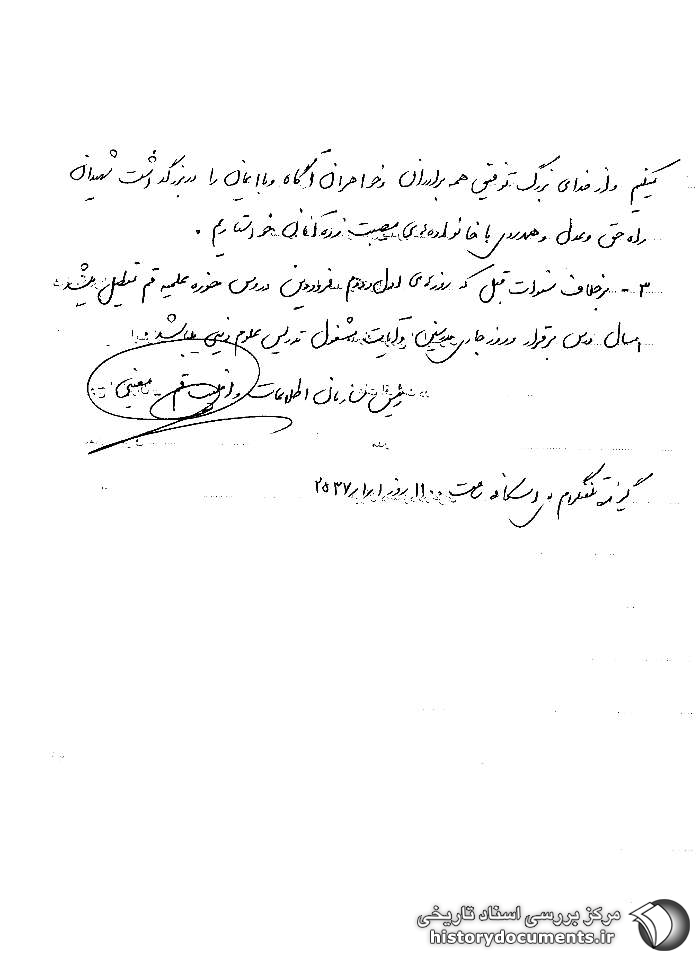 میکنیم و از خدای بزرگ توفیق همه برادران و خواهران آگاه و با ایمان را در بزرگداشت شهیدان
راه حق و عدل و همدردی با خانواده‌های مصیبت زده آنان خواستاریم .
۳ - برخلاف سنوات قبل که روزهای اول و دوم فروردین دروس حوزه علمیه قم تعطیل میشد
امسال درس برقرار و روز جاری مدرسین و آیات مشغول تدریس علوم دینی میباشند
رئیس سازمان اطلاعات و امنیت قم - معینی
گیرنده تلگرام ساعت ۱۱۰۰ روز ۱/۱/۲۵۳۷
مرکز بررسی اسناد تاریخی
historydocuments.ir